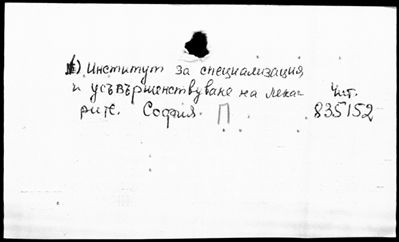 1) Институт за специализация
и усъвършенствуване на лека- Чит.
рите. София. П 835152